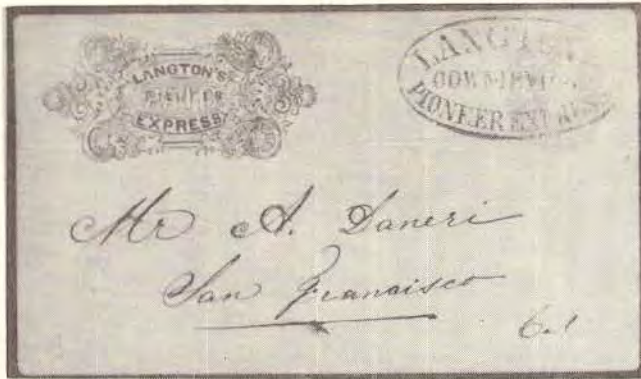 LANGTON'S
PIONEER
EXPRESS
LANGTON'S
DOWNIEVILLE
PIONEER EXPRESS
Mr A. Daneri
San Francisco
Cal